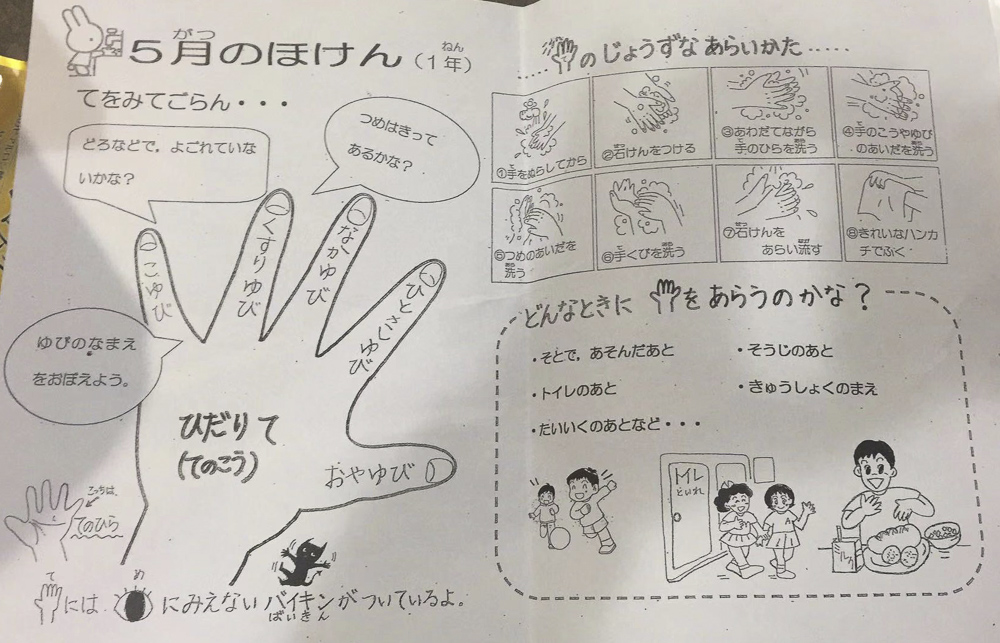 ５月のほけん（１年）
がつ
ねん
てをみてごらん・・・
どろなどで，よごれていな
いかな？
つめはきって
あるかな？
こゆび
くすりゆび
なかゆび
ひとさしゆび
おやゆび
ゆびのなまえ
をおぼえよう。
ひだりて
(てのこう)
こっちは、
てのひら
て
め
には
にみえないバイキンがついているよ。
ばいきん
のじょうずなあらいかた
①手をぬらしてから
②石けんをつける
③あわだてながら
手のひらを洗う
④手のこうやゆび
のあいだを洗う
⑤つめのあいだを
洗う
⑥手くびを洗う
⑦石けんを
あらい流す
⑧きれいなハンカ
チでふく
どんなときに
をあらうのかな？
・そとで，あそんだあと
・そうじのあと
・トイレのあと
・きゅうしょくのまえ
・たいいくのあとなど・・・
といれ